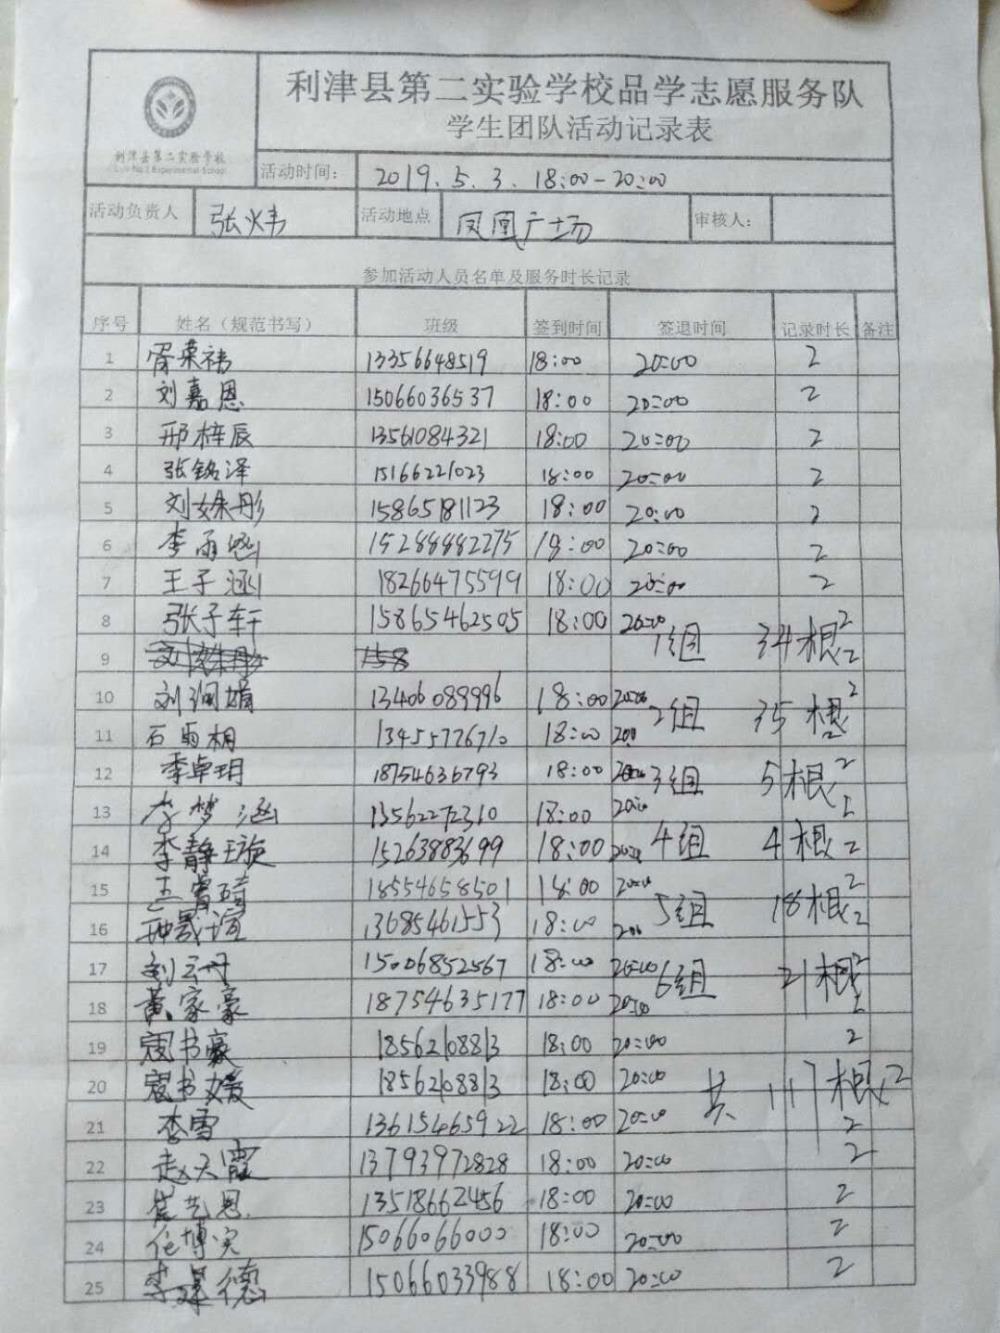 利津县第二实验学校品学志愿服务队
学生团队活动记录表
利津县第二实验学校
活动时间： 2019.5.3. 18:00-20:00
活动负责人 张炜 活动地点 凤凰广场 审核人：
参加活动人员名单及服务时长记录
序号 姓名（规范书写） 班级 签到时间 签退时间 记录时长 备注
1 13356648519 18:00 20:00 2
2 刘嘉恩 15066036537 18:00 20:00 2
3 邢梓辰 13561084321 18:00 20:00 2
4 张铭泽 15166221023 18:00 20:00 2
5 刘姝彤 15865181123 18:00 20:00 2
6 李雨 15288882275 18:00 20:00 2
7 王子涵 18266475599 18:00 20:00 2
8 张子轩 15865462505 18:00 20:00 2
1组 34根
9 158 2
10 刘润娟 13406089996 18:00 20:00 2
2组 35根
11 石雨桐 13455776710 18:00 200 2
12 李卓玥 18754636793 18:00 20:00 2
3组 5根
13 李梦涵 13562272310 18:00 20:00 2
14 李静璇 15263883699 18:00 20:00 2
4组 4根
15 18554658501 18:00 20:00 2
5组 18根
16 13685461553 18:00 200 2
17 刘云 15006852567 18:00 20:00 2
6组 21根
18 黄家豪 18754635177 18:00 20:00 2
19 寇书豪 18562108813 18:00 20:00 2
20 寇书媛 18562108813 18:00 20:00 2
共 117根
21 李雪 13615465922 18:00 20:00 2
22 赵天霞 13793972828 18:00 20:00 2
23 崔艺恩 13518662456 18:00 20:00 2
24 任博 15066066000 18:00 20:00 2
25 李 德 15066033988 18:00 20:00 2